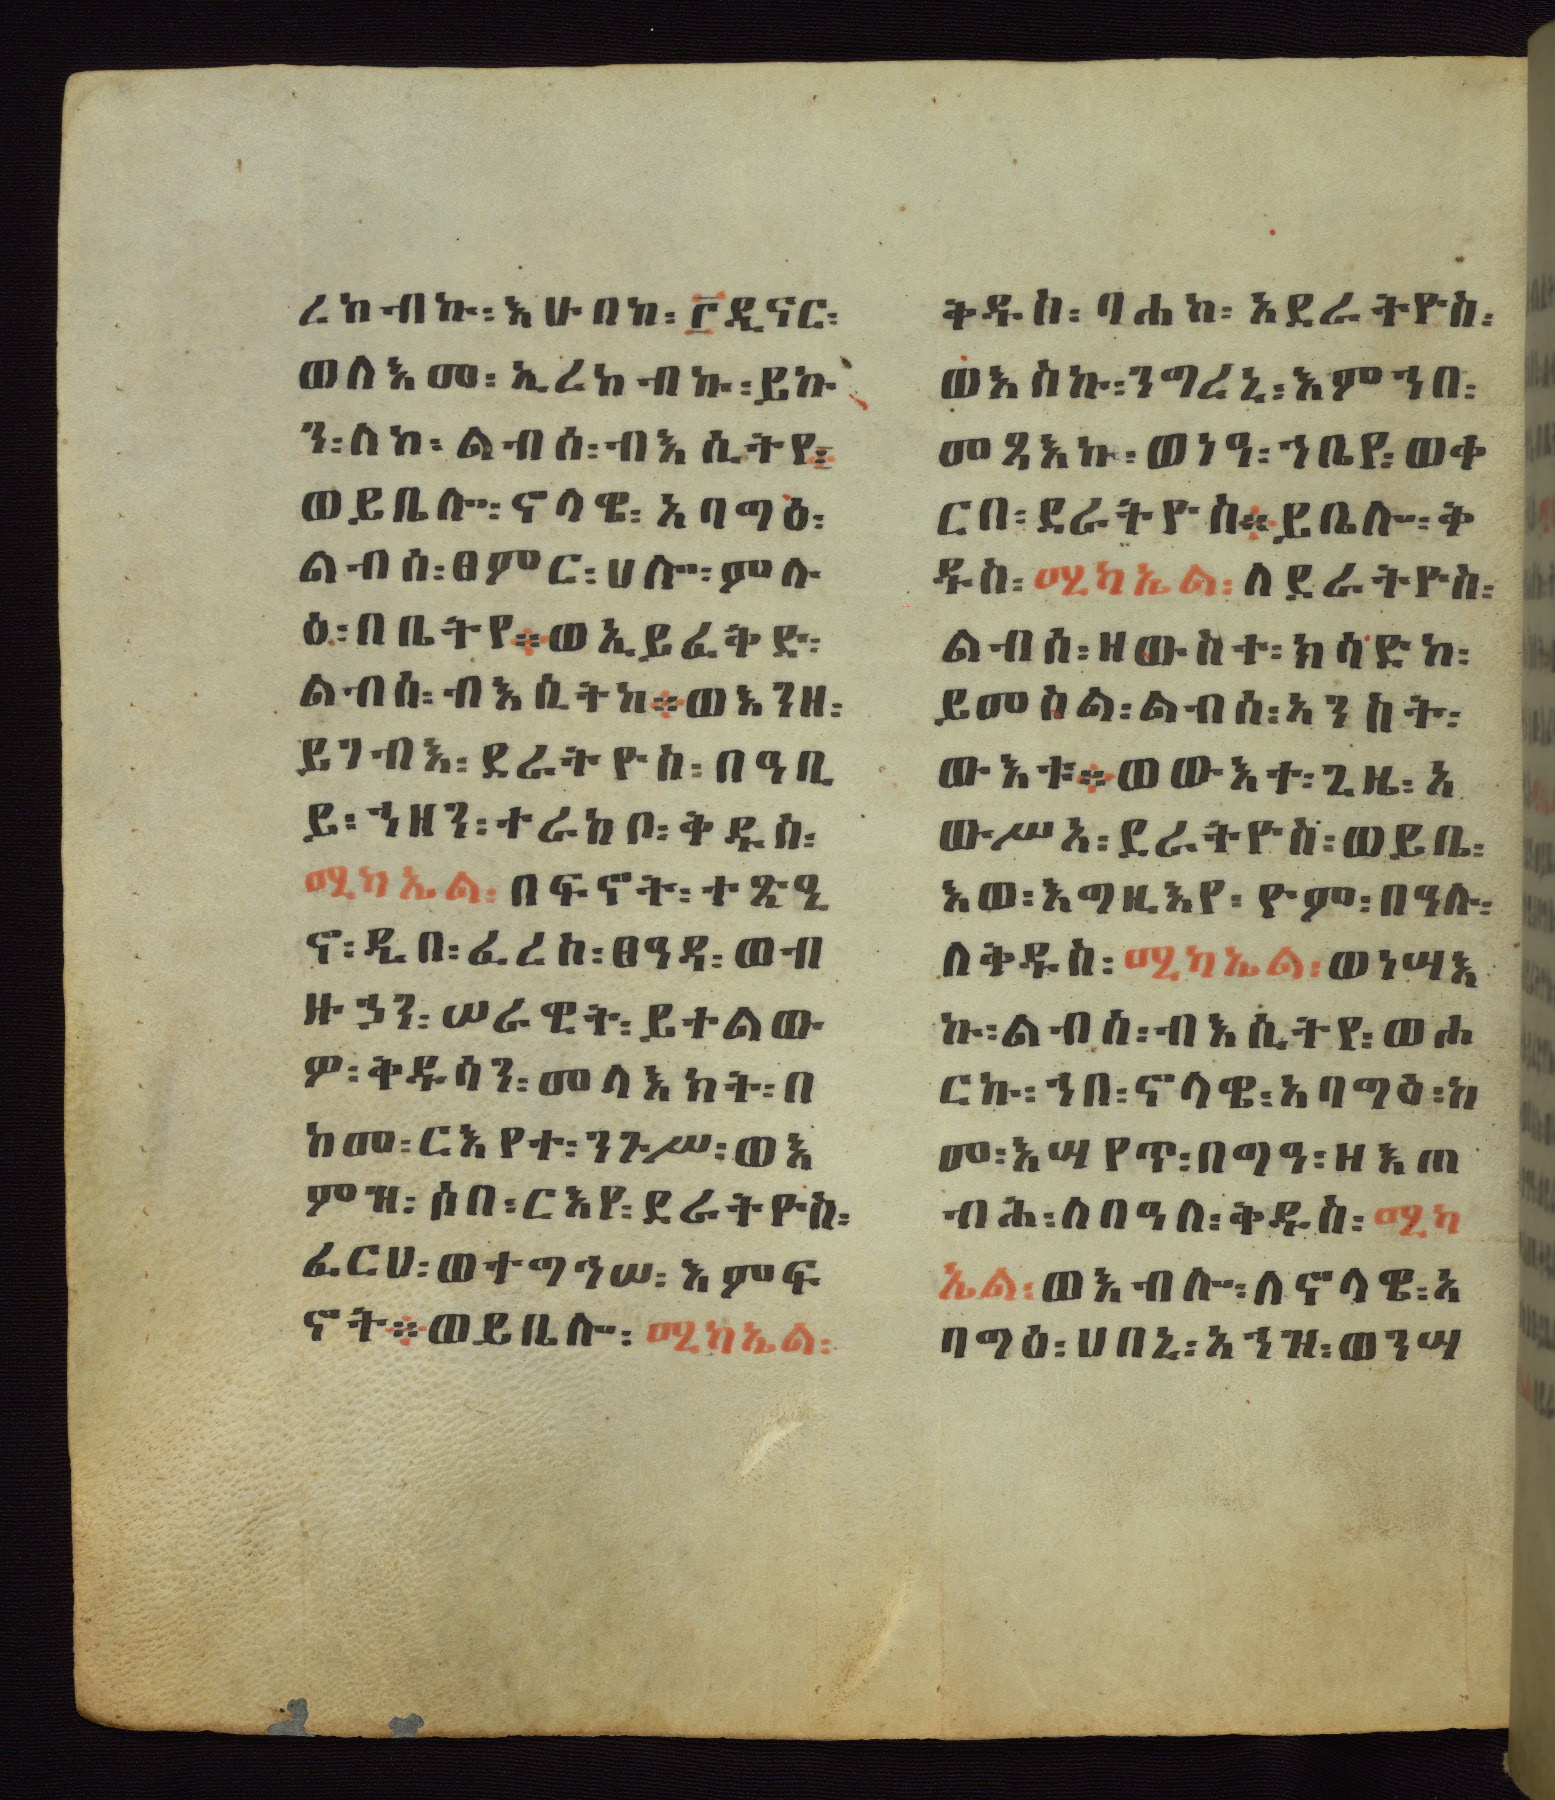 ረከብኩ፡እሁበከ፡፫ዲናር፡
ወለእመ፡ኢረከብኩ፡ይኩ
ን፡ለከ፡ልብሰ፡ብእሲትየ፡
ወይቤሎ፡ኖላዌ፡አባግዕ፡
ልብሰ፡ፀምር፡ሀሎ፡ምሉ
ዕ፡በቤትየ፨ወኢይፈቅድ፡
ልብሰ፡ብእሲትከ፨ወእንዘ፡
ይገብእ፡ደራትዮስ፡በዓቢ
ይ፡ኀዘን፡ተራከቦ፡ቅዱስ፡
ሚካኤል፡በፍኖት፡ተጽዒ
ኖ፡ዲበ፡ፈረስ፡ፀዓዳ፡ወብ
ዙኃን፡ሠራዊት፡ይተልው
ዎ፡ቅዱሳን፡መላእክት፡በ
ከመ፡ርእየተ፡ንጉሥ፡ወእ
ምዝ፡ሶበ፡ርእየ፡ደራትዮስ፡
ፈርሀ፡ወተግኅሠ፡እምፍ
ኖት፨ወይቤሎ፡ሚካኤል፡
ቅዱስ፡ባሐከ፡አደራትዮስ፡
ወእስኩ፡ንግረኒ፡እምኀበ፡
መጻእኩ፡ወነዓ፡ኀቤየ፡ወቀ
ርበ፡ደራትዮስ፨ይቤሎ፡ቅ
ዱስ፡ሚካኤል፡ለደራትዮስ፡
ልብሰ፡ዘውስተ፡ክሳድከ፡
ይመስል፡ልብሰ፡አንስት፡
ውእቱ፨ወውእተ፡ጊዜ፡አ
ውሥአ፡ደራትዮስ፡ወይቤ፡
እወ፡እግዚእየ፡ዮም፡በዓሉ፡
ለቅዱስ፡ሚካኤል፡ወነሣእ
ኩ፡ልብሰ፡ብእሲትየ፡ወሐ
ርኩ፡ኀበ፡ኖላዌ፡አባግዕ፡ከ
መ፡እሣየጥ፡በግዓ፡ዘእጠ
ብሕ፡ለበዓለ፡ቅዱስ፡ሚካ
ኤል፡ወእብሎ፡ለኖላዌ፡አ
ባግዕ፡ሀበኒ፡አኀዝ፡ወንሣ